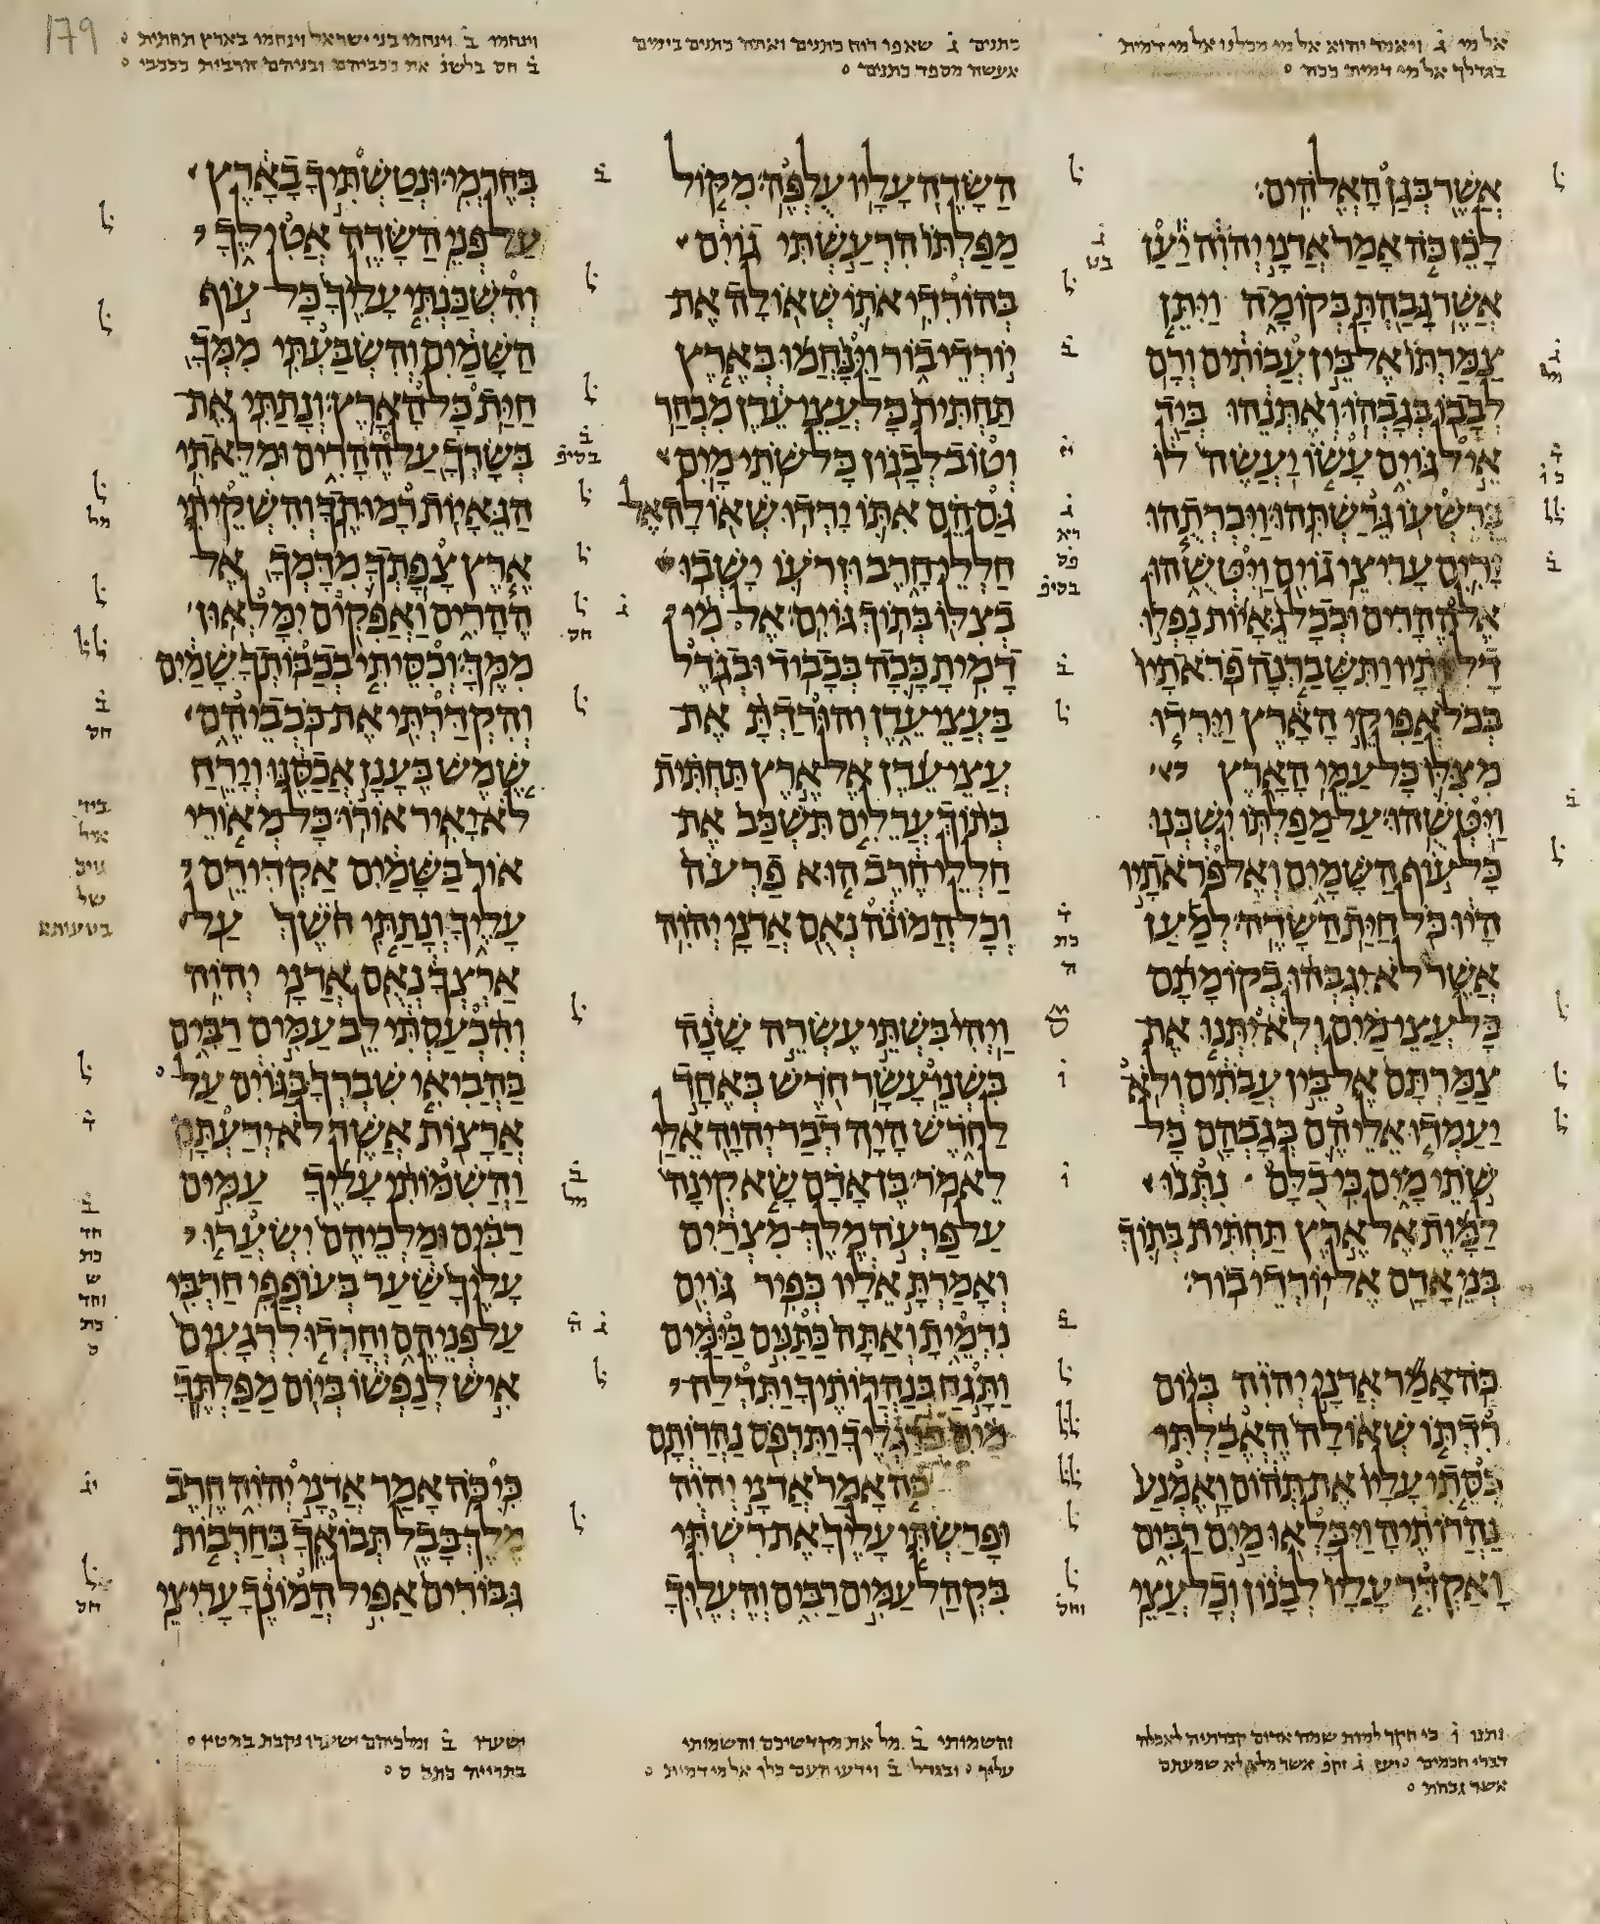 179
אל מי ג ויאמר יהוא אל מי מכלנו אל מי דמית
בגדלך אל מי דמית ככה
אשר בגן האלהים
לכן כה אמר אדני יהוה יען
אשר גבהת בקומה ויתן
צמרתו אל בין עבותים ורם
לבבו בגבהו ואתנהו ביד
איל גוים עשו יעשה לו
כרשעו גרשתהו ויכרתהו
זרים עריצי גוים ויטשהו
אל ההרים ובכל גאיות נפלו
דליותיו ותשברנה פראתיו
בכל אפיקי הארץ וירדו
מצלו כל עמי הארץ
ויטשהו על מפלתו ישכנו
כל עוף השמים ואל פראתיו
היו כל חית השדה למען
אשר לא יגבהו בקומתם
כל עצי מים ולא יתנו את
צמרתם אל בין עבתים ולא
יעמדו אליהם בגבהם כל
שתי מים כי כלם נתנו
למות אל ארץ תחתית בתוך
בני אדם אל יורדי בור
כה אמר אדני יהוה ביום
רדתו שאולה האבלתי
כסתי עליו את תהום ואמנע
נהרותיה ויכלאו מים רבים
ואקדר עליו לבנון וכל עצי
נתנו ו כי חקך למות שמח אדום קברתיה לאכלה
דברי חכמים אשר לא שמעתם
אשר גבהת
כתנים ג שאפו רוח כתנים ואתה כתנים בימים
אעשה מספד כתנים
השדה עליו עלפה מקול
מפלתו הרעשתי גוים
בהורדי אתו שאולה את
יורדי בור וינחמו בארץ
תחתית כל עצי עדן מבחר
וטוב לבנון כל שתי מים
גם הם אתו ירדו שאולה אל
חללי חרב וזרעו ישבו
בצלו בתוך גוים אל מי
דמית ככה בכבוד ובגדל
בעצי עדן והורדת את
עצי עדן אל ארץ תחתית
בתוך ערלים תשכב את
חללי חרב הוא פרעה
וכל המונה נאם אדני יהוה
ויהי בשתי עשרה שנה
בשני עשר חדש באחד
לחדש היה דבר יהוה אלי
לאמר בן אדם שא קינה
על פרעה מלך מצרים
ואמרת אליו כפיר גוים
נדמית ואתה כתנים בימים
ותגח בנהרותיך ותדלח
מים ברגליך ותרפס נהרותם
כה אמר אדני יהוה
ופרשתי עליך את רשתי
בקהל עמים רבים והעלוך
והשמותי ב מל את מקדשיכם והשמותי
עליך ובגדל ב וידעו העם כלו אל מי דמית
וינחמו ב וינחמו בני ישראל וינחמו בארץ תחתית
ב חס בלשנ את ככביהם ובניהם הרבית כככבי
בחרמי ונטשתיך בארץ
על פני השדה אטילך
והשכנתי עליך כל עוף
השמים והשבעתי ממך
חית כל הארץ ונתתי את
בשרך על ההרים ומלאתי
הגאיות רמותך והשקיתי
ארץ צפתך מדמך אל
ההרים ואפקים ימלאון
ממך וכסיתי בכבותך שמים
והקדרתי את ככביהם
שמש בענן אכסנו וירח
לא יאיר אורו כל מאורי
אור בשמים אקדירם
עליך ונתתי חשך על
ארצך נאם אדני יהוה
והכעסתי לב עמים רבים
בהביאי שברך בגוים על
ארצות אשר לא ידעתם
והשמותי עליך עמים
רבים ומלכיהם ישערו
עליך שער בעופפי חרבי
על פניהם וחרדו לרגעים
איש לנפשו ביום מפלתך
כי כה אמר אדני יהוה חרב
מלך בבל תבואך בחרבות
גבורים אפיל המונך עריצי
ישערו ב ומלכיהם ישערו